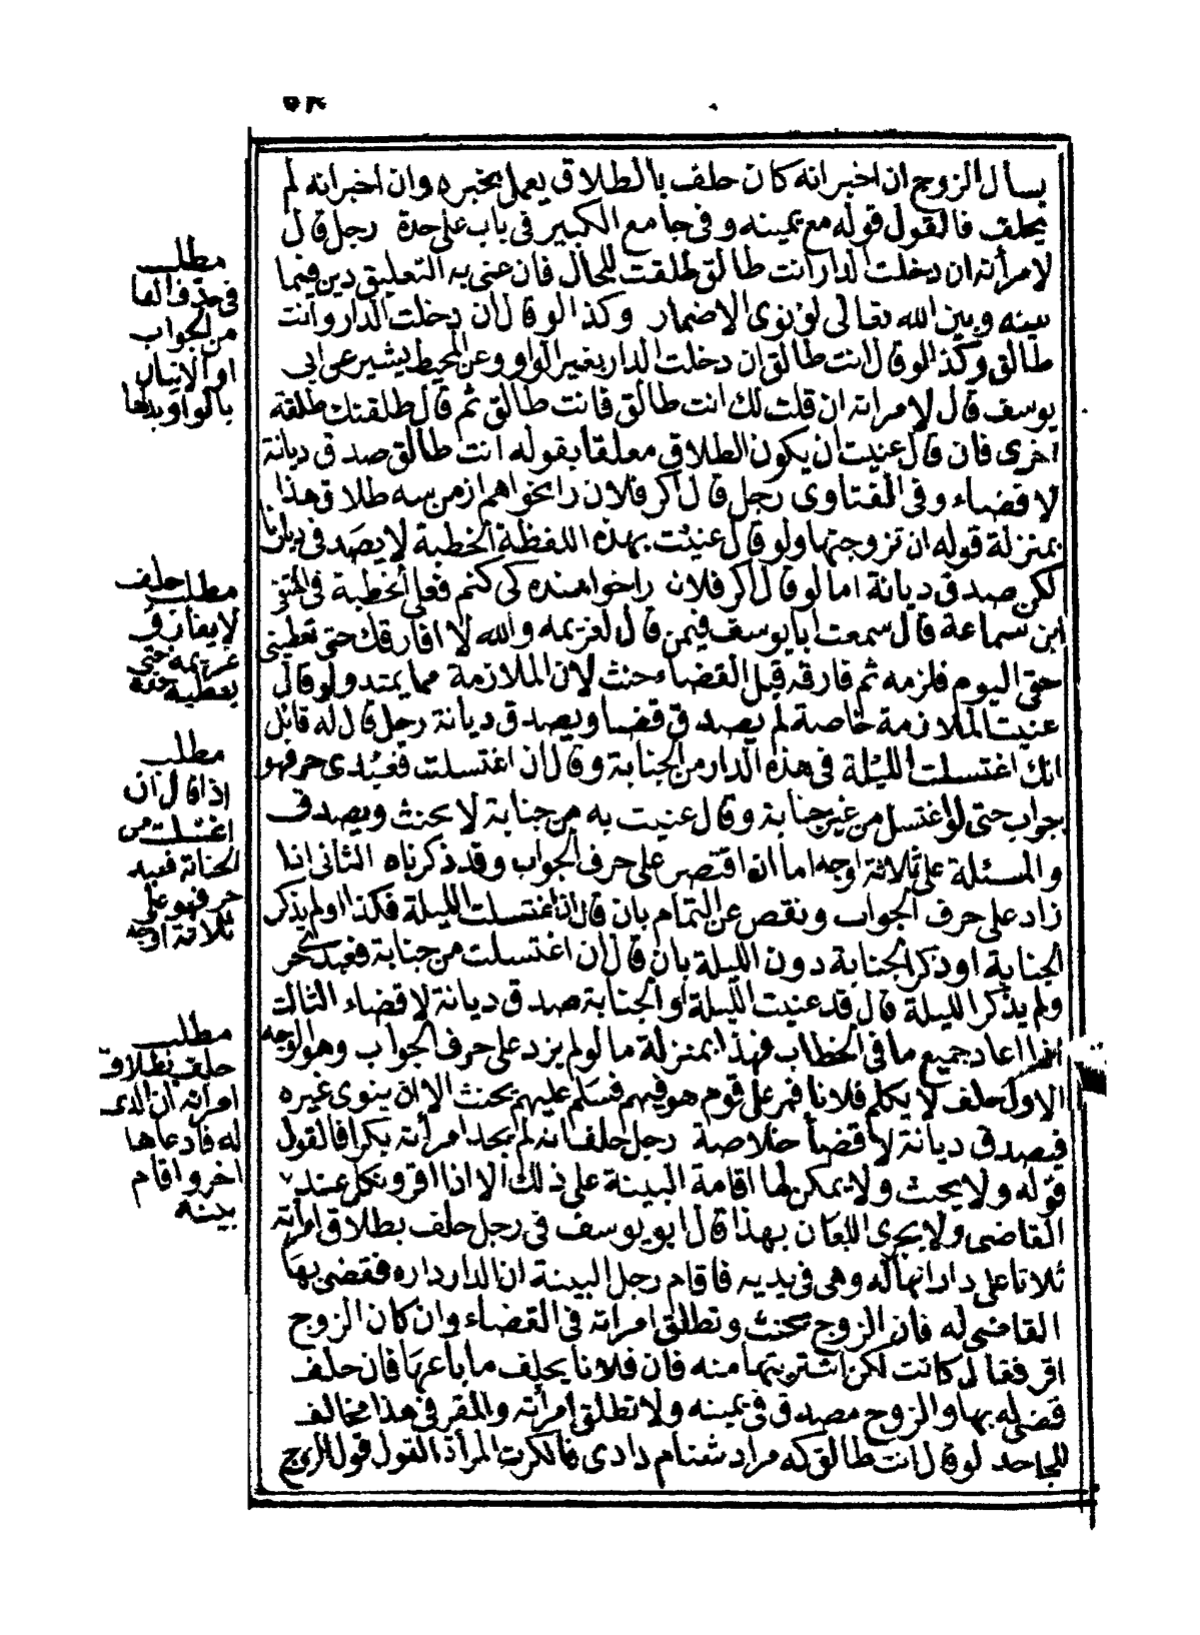 ٥٣
يسأل الزوج ان اخبر انه كان حلف بالطلاق يعمل بخبره وان اخبر انه لم
يحلف فالقول قوله مع يمينه وفى جامع الكبير فى باب على حدة رجل قال
لامرأته ان دخلت الدار انت طالق طلقت للحال فان عنى به التعليق دين فيما
بينه وبين الله تعالى لو نوى الاضمار وكذا لو قال ان دخلت الدار وانت
طالق وكذا لو قال انت طالق ان دخلت الدار بغير الواو وعن المحيط يشير عن ابى
يوسف قال لامراته ان قلت لك انت طالق فانت طالق ثم قال طلقتك طلقة
اخرى فان قال عنيت ان يكون الطلاق معلقا بقوله انت طالق صدق ديانة
لا قضاء وفى الفتاوى رجل قال اكر فلان را بخواهم از من سه طلاق هذا
بمنزلة قوله ان تزوجتها ولو قال عنيت بهذه اللفظة الخطبة لا يصدق فى ديارنا
لكن صدق ديانة اما لو قال اكر فلان را خواهنده كى كنم فعلى الخطبة فى المنتقى
ابن سماعة قال سمعت ابا يوسف فيمن قال لغريمه والله لا افارقك حتى تعطينى
حقى اليوم فلزمه ثم فارقه قبل القضاء حنث لان الملازمة مما يمتد ولو قال
عنيت الملازمة خاصة لم يصدق قضا ويصدق ديانة رجل قال له قائل
انك اغتسلت الليلة فى هذه الدار من الجنابة وقال ان اغتسلت فعبدى حر فهو
جواب حتى لو اغتسل من غير جنابة وقال عنيت به من جنابة لا يحنث ويصدق
والمسئلة على ثلاثة اوجه اما ان اقتصر على حرف الجواب وقد ذكرناه الثانى اذا
زاد على حرف الجواب ونقص عن التمام بان قال ان اغتسلت الليلة فكذا او لم يذكر
الجنابة او ذكر الجنابة دون الليلة بان قال ان اغتسلت من جنابة فعبدى حر
ولم يذكر الليلة قال قد عنيت الليلة او الجنابة صدق ديانة لا قضاء الثالث
اذا اعاد جميع ما فى الخطاب فهذا بمنزلة ما لو لم يزد على حرف الجواب وهو الوجه
الاول حلف لا يكلم فلانا فمر على قوم هو فيهم فسلم عليهم يحنث الا ان ينوى غيره
فيصدق ديانة لا قضا خلاصة رجل حلف انه لم يجد امرأته بكرا فالقول
قوله ولا يحنث ولا يمكن لها اقامة البينة على ذلك الا اذا اقر ونكل عند
القاضى ولا يجرى اللعان بهذا قال ابو يوسف فى رجل حلف بطلاق امرأته
ثلاثا على دار انها له وهى فى يديه فاقام رجل البينة ان الدار داره فقضى بها
القاضى له فان الزوج يحنث وتطلق امراته فى القضاء وان كان الزوج
اقر فقال كانت لكن اشتريتها منه فان فلانا يحلف ما باعها فان حلف
قضى له بها والزوج مصدق فى يمينه ولا تطلق امرأته والمقر فى هذا مخالف
للجاحد لو قال انت طالق كه مراد شنام دادى فانكرت المرأة القول قول الزوج
مطلب
فى حذف الفا
من الجواب
او الاتيان
بالواو بدلها
مطلب حلف
لا يفارق
غريمه حتى
يعطيه حقه
مطلب
اذا قال ان
اغتسلت من
الجنابة فعبده
حر فهو على
ثلاثة اوجه
مطلب
حلف بطلاق
امرأته ان الدار
له فادعاها
اخر واقام
بينة